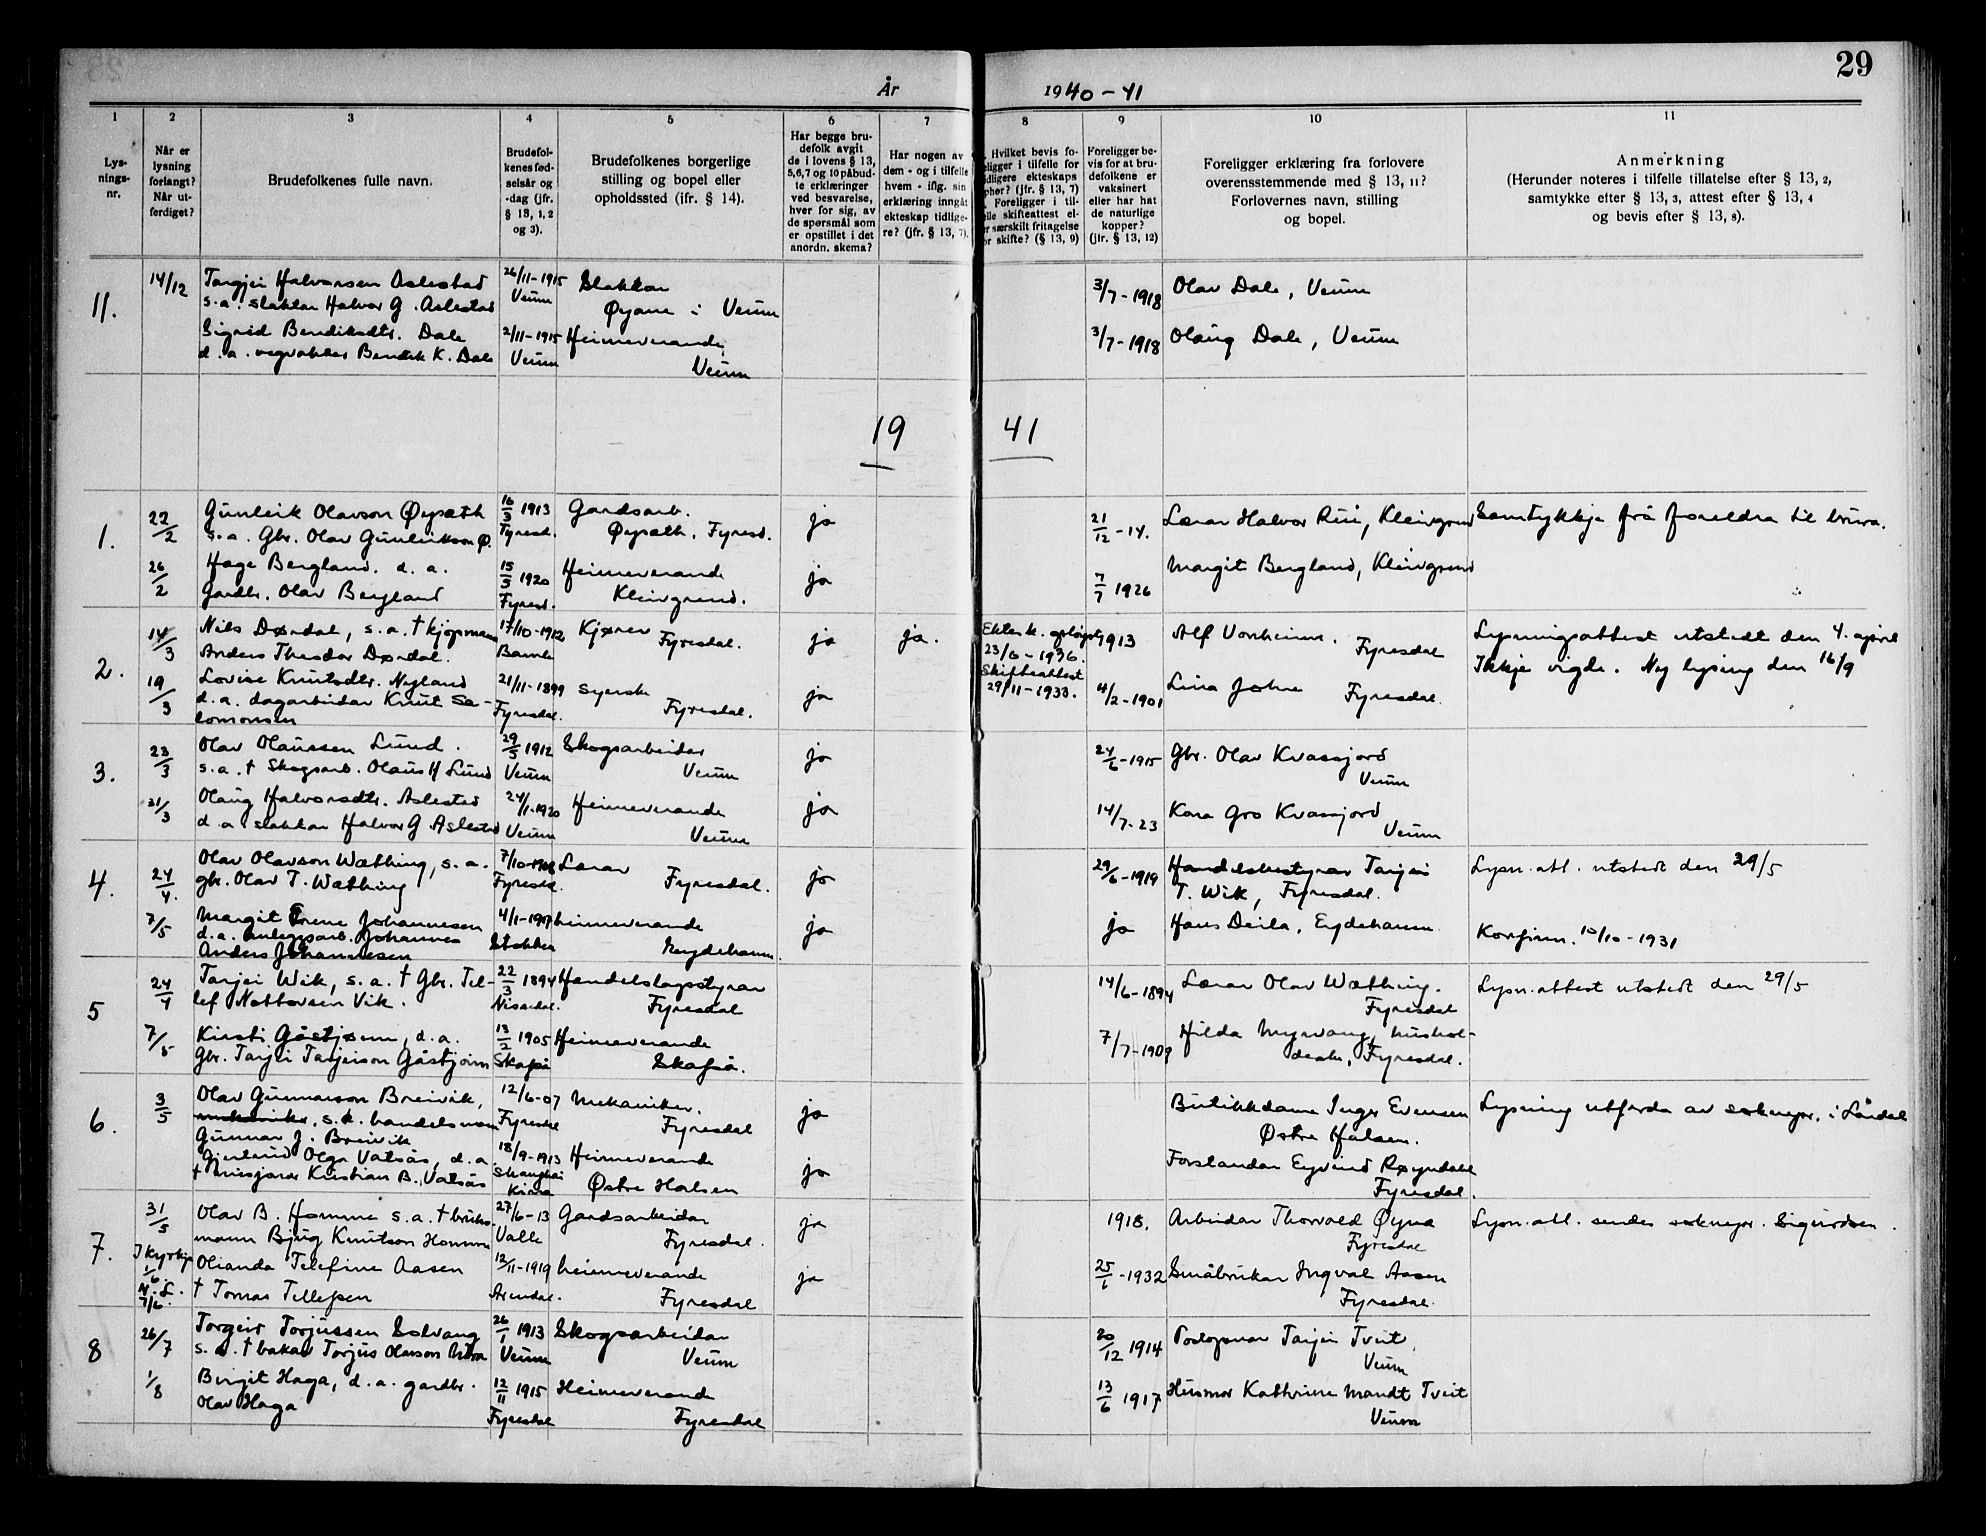 29
År 1940-41
1 2 3 4 5 6 7 8 9 10 11
Lys-
nings-
nr.
Når er
lysning
forlangt?
Når ut-
ferdiget?
Brudefolkenes fulle navn.
Brudefol-
kenes fød-
selsår og
-dag (jfr.
§ 13, 1, 2
og 3).
Brudefolkenes borgerlige
stilling og bopel eller
opholdssted (jfr. § 14).
Har begge bru-
defolk avgit
de i lovens § 13,
5, 6, 7 og 10 påbud-
te erklæringer
ved besvarelse,
hver for sig, av
de spørsmål som
er opstillet i det
anordn. skema?
Har nogen av
dem - og i tilfelle
hvem - iflg. sin
erklæring inngåt
ekteskap tidlige-
re? (jfr. § 13, 7).
Hvilket bevis fo-
religger i tilfelle for
tidligere ekteskaps
ophør? (jfr. § 13, 7)
Foreligger i til-
felle skifteattest el-
ler særskilt fritagelse
for skifte? (§ 13, 9)
Foreligger be-
vis for at bru-
defolkene er
vaksinert
eller har hat
de naturlige
kopper?
(jfr. § 13, 12)
Foreligger erklæring fra forlovere
overensstemmende med § 13, 11?
Forlovernes navn, stilling
og bopel.
Anmerkning
(Herunder noteres i tilfelle tillatelse efter § 13, 2,
samtykke efter § 13, 3, attest efter § 13, 4
og bevis efter § 13, 8).
11.
14/12
Targjei Halvorsen Aslestad
s.a. slaktar Halvor G. Aslestad
26/11-1915
Veum
Slaktar
Øyane i Veum
3/7-1918
Olav Dale, Veum
Sigrid Bendiksdtr. Dale
d.a. vegvaktar Bendik K. Dale
2/11-1915
Veum
Heimeverande
Veum
3/7-1918
Olaug Dale, Veum
19 41
1.
22/2
Gunleik Olavson Øypath
s.a. Gbr. Olav Gunleikson Ø.
16/3 1913
Fyresd.
Gardsarb.
Øypath, Fyresd.
ja
21/12-14.
Lærar Halvor Rui, Kleivgrend
Samtykkje frå foreldra til brura.
26/2
Hæge Bergland. d.a.
Gardbr. Olav Bergland
15/5 1920
Fyresd.
Heimeverande
Kleivgrend.
ja
7/7 1926
Margit Bergland, Kleivgrend
2.
14/3
Nils Dørdal, s.a. † kjøpmann
Anders Theodor Dørdal.
17/10-1912
Bamle
Kjørar Fyresdal.
ja
ja.
Ektesk. opløyst
23/6-1936.
Skifteattest
29/11-1933.
1913
Alf Vonheim.
Fyresdal
Lysningsattest utstedt den 4. april
Ikkje vigde. Ny lysing den 16/9
19/3
Lovise Knutsdtr. Nyland
d.a. dagarbeidar Knut Sa-
lomonsen
21/11-1899
Fyresdal.
Syerske
Fyresdal.
ja
4/2-1901
Lina Johre Fyresdal.
3.
23/3
Olav Olaussen Lund.
s.a. † Skogsarb. Olaus H Lund
29/5 1912
Veum
Skogsarbeidar
Veum
ja
24/6-1915
Gbr. Olav Kvasjord
Veum
31/3
Olaug Halvorsdtr. Aslestad
d.a. slaktar Halvor G Aslestad
24/1-1920
Veum
Heimeverande
Veum
ja
14/7-23
Kara Gro Kvasjord
Veum
4.
24/4.
Olav Olavson Wæthing, s.a.
gbr. Olav T. Wæthing
7/10-1908
Fyresdal.
Lærar
Fyresdal.
ja
29/6-1919
Handelsbestyrar Tarjei
T. Wik, Fyresdal.
Lysn.att. utstedt den 29/5
7/5
Margit Irene Johannesen
d.a. anleggsarb. Johannes
Anders Johannesen
4/1-1917
Stokken
heimeverande
Eydehavn.
ja
ja
Hans Deila, Eydehavn.
Konfirm. 10/10-1931
5
24/4
Tarjei Wik, s.a. † Gbr. Tel-
lef Nottovsen Vik.
22/3 1894
Nissedal.
Handelslagsstyrar
Fyresdal
14/6-1894
Lærar Olav Wæthing.
Fyresdal
Lysn.attest utstedt den 29/5
7/5
Kirsti Gåstjønn, d.a.
Gbr. Tarjei Tarjeison Gåstjønn
13/2 1905
Skafså
Heimeverande
Skafså.
7/7-1909
Hilda Myrvang, hushol-
derske, Fyresdal.
6.
3/5
Olav Gunnarson Breivik,
mekaniker, s.a. handelsmann
Gunnar J. Breivik
12/6-07
Fyresdal
Mekaniker.
Fyresdal
ja
Butikkdame Inger Evensen
Østre Halsen.
Lysning utferda av sokneprr. i Lårdal
Gjertrud Olga Vatsås, d.a.
† misjonær Kristian B. Vatsås
18/9-1913
Shanghai
Kina
Heimeverande
Østre Halsen
ja
Forstandar Eyvind Røyndahl
Fyresdal.
7.
31/5
Olav B. Homme s.a. † bruks-
mann Bjug Knutson Homme
27/6-13
Valle
Gardsarbeidar
Fyresdal.
ja
1918.
Arbeidar Thorvald Øyna
Fyresdal
Lysn.att. sendes sokneprr. Sigurdsen.
I kyrkja
1/6.
N.L.
7/6.
Olianda Telefine Aasen
† Tomas Tellefsen
12/11-1919
Arendal.
heimeverande
Fyresdal
ja
25/6-1932
Småbrukar Ingval Aasen
Fyresdal.
8
26/7
Torgeir Torjussen Solvang
s.a. † bakar Torjus Olavson Moa
26/1 1913
Veum
Skogsarbeidar
Veum
20/12 1914
Postopnar Tarjei Tveit,
Veum
1/8
Birgit Haga, d.a. gardbr.
Olav Haga
12/11 1915
Fyresdal
Heimeverande
Fyresdal
13/6 1917
Husmor Kathrine Mandt Tveit
Veum